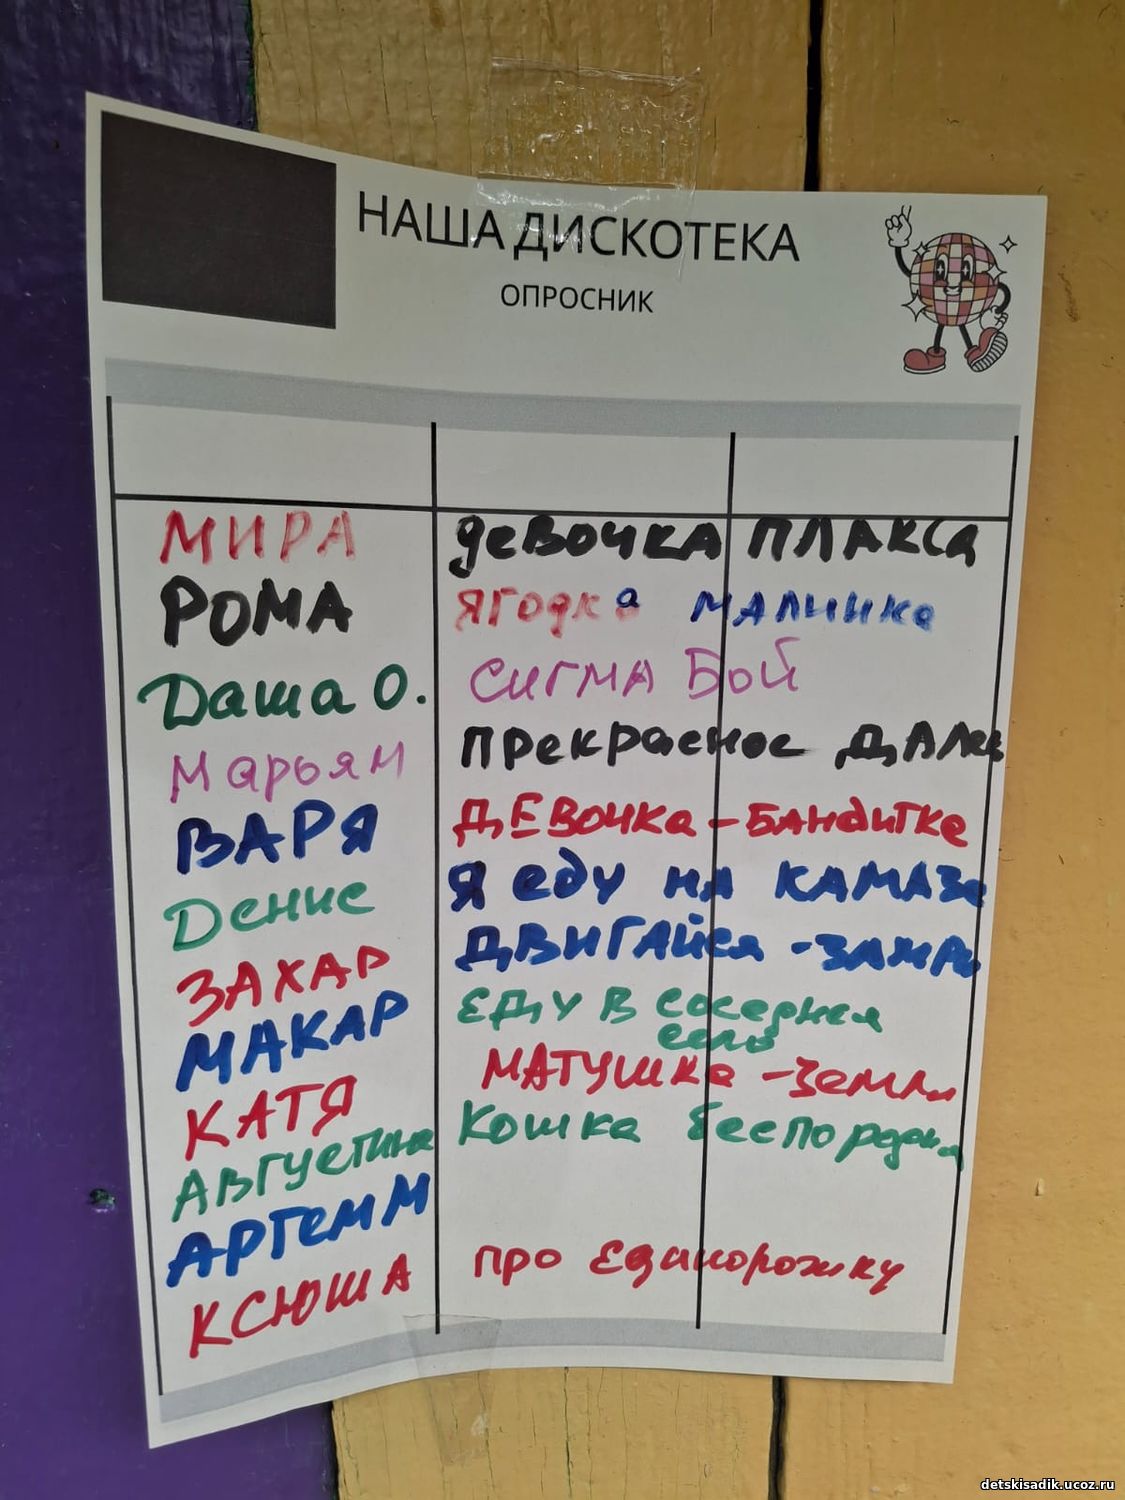 НАША ДИСКОТЕКА
ОПРОСНИК
МИРА девочка ПЛАКСА
РОМА Ягодка МАЛИНКА
Даша О. СИГМА БОЙ
Марьям Прекрасное ДАЛЕК
ВАРЯ ДЕВОЧКА - БАНДИТКА
Денис Я еду на КАМАЗе
ЗАХАР ДВИГАЙСЯ - ЗАМРИ
МАКАР ЕДУ В соседнее
село
КАТЯ МАТУШКА - Земля
АВГУСТИНА Кошка беспорядки
АРТЕМ М
КСЮША про Единорожку
detskisadik.ucoz.ru